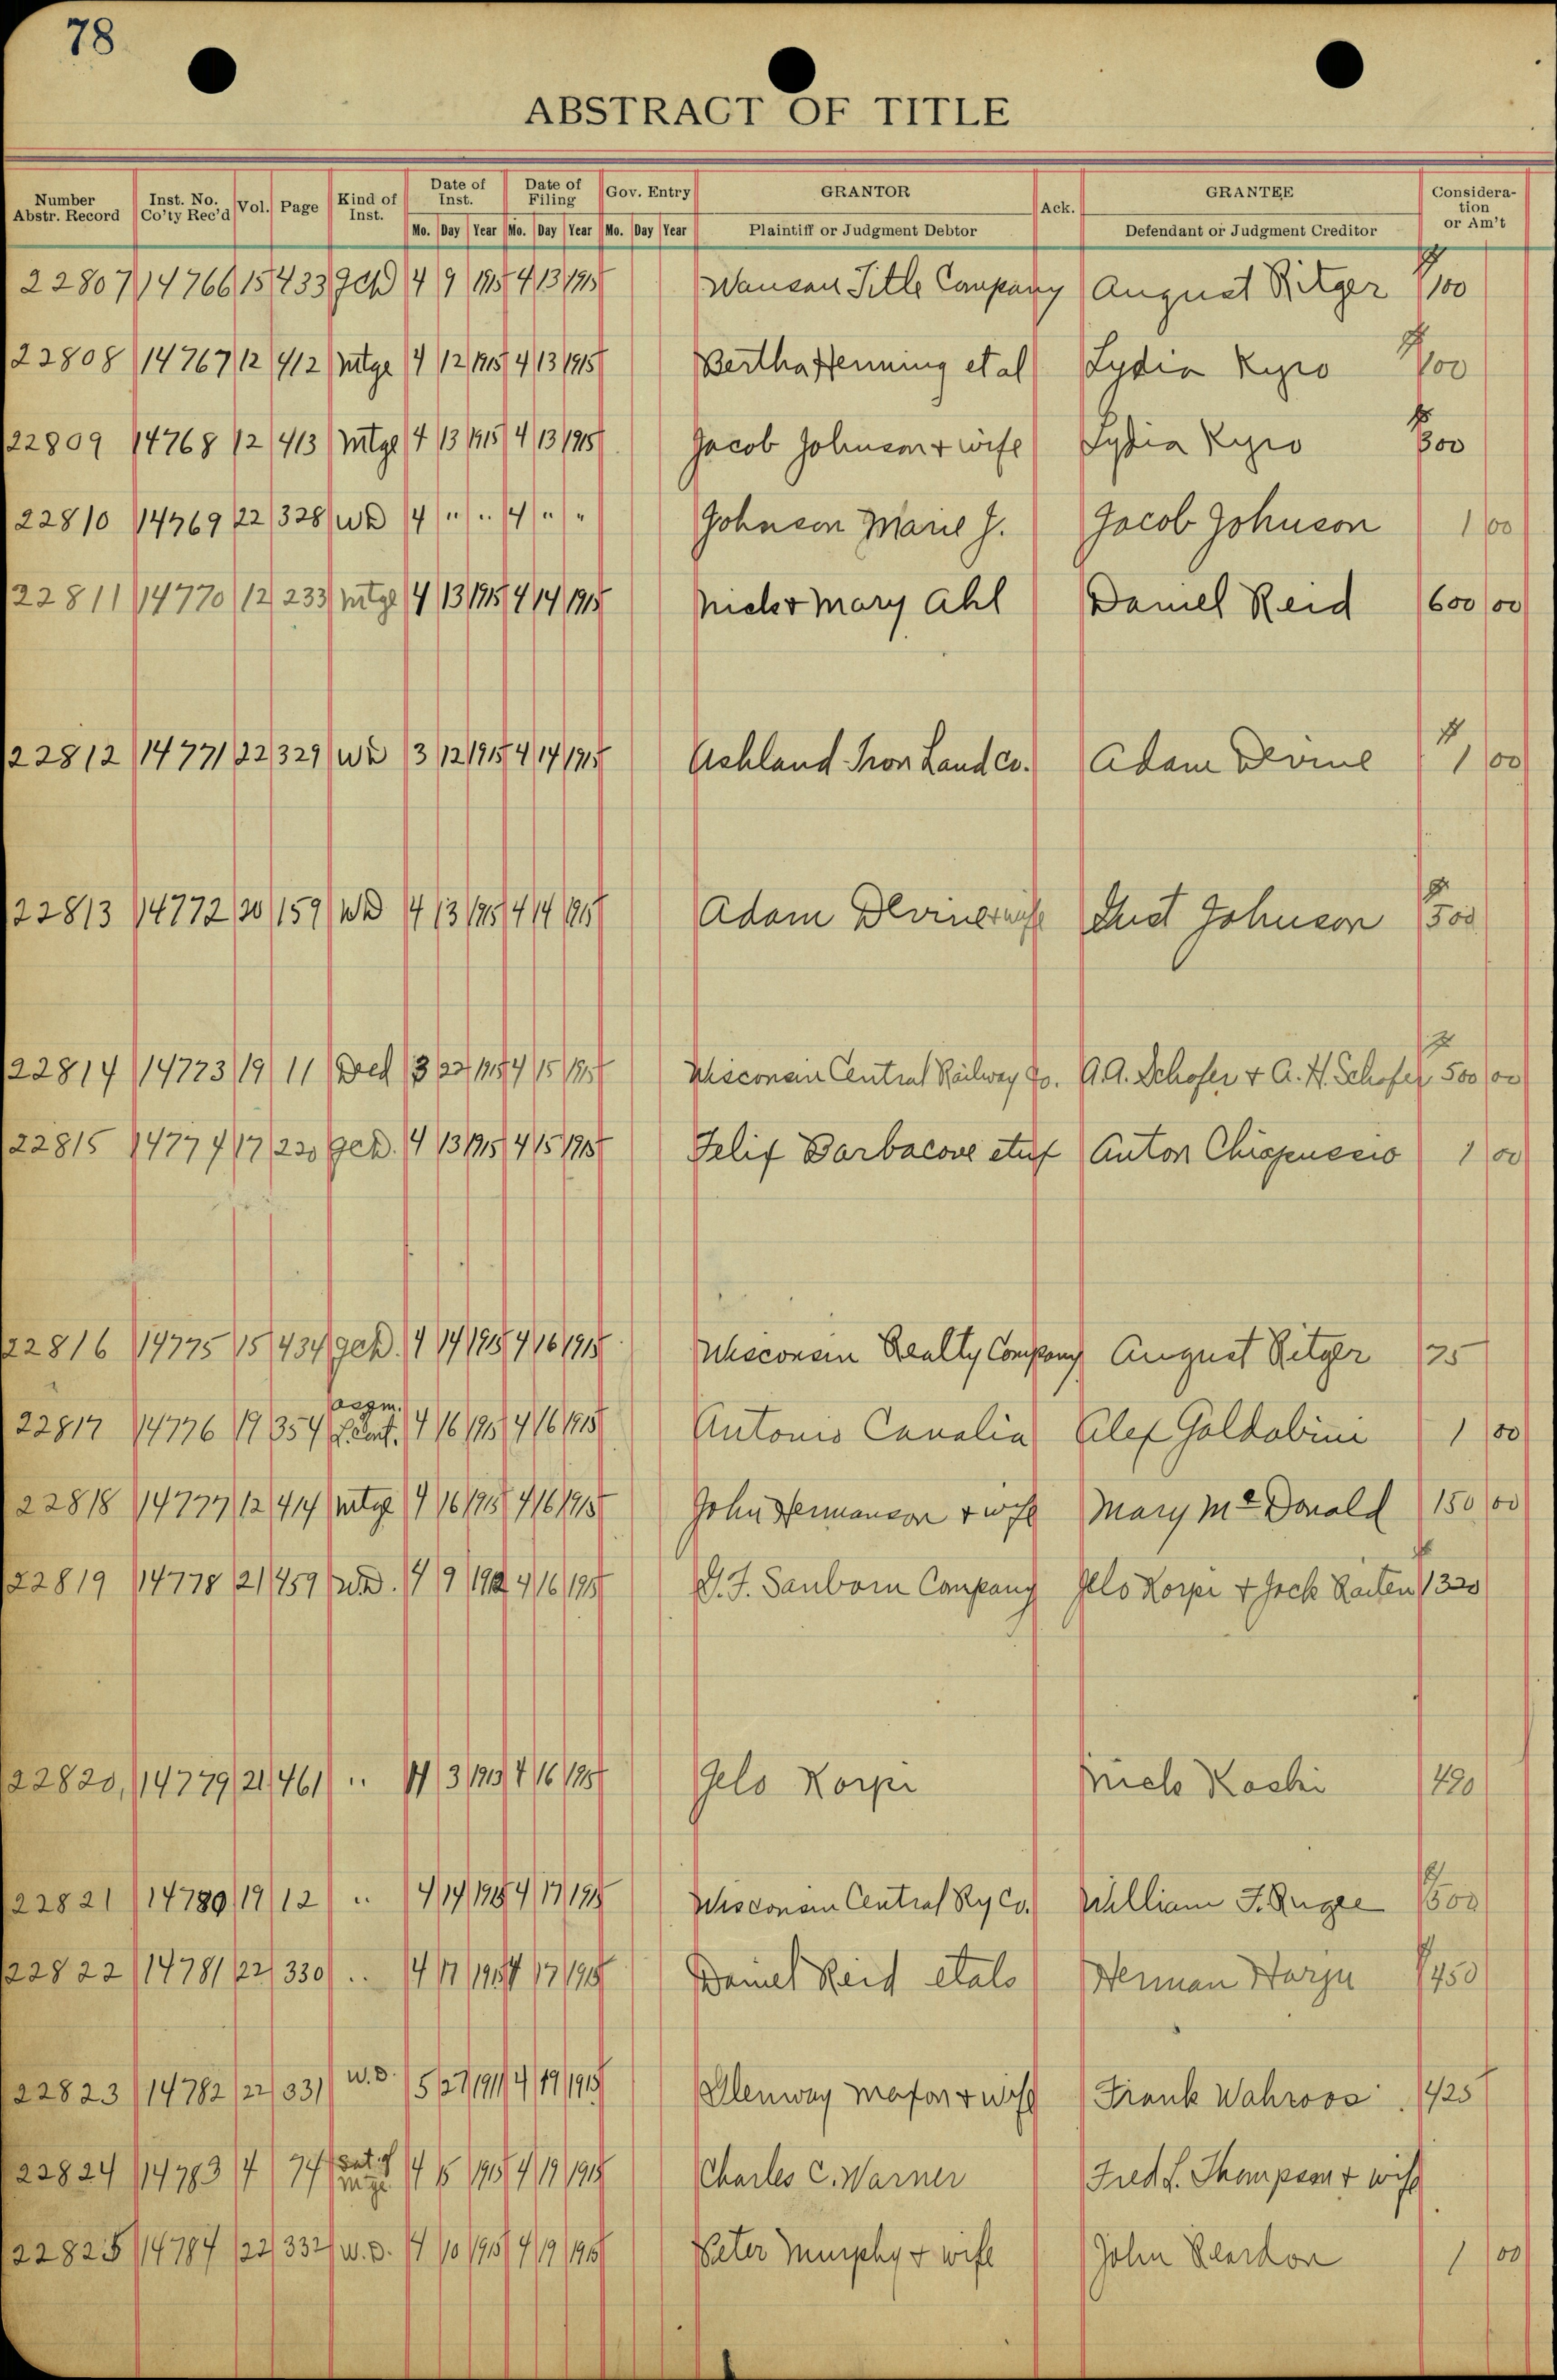 78
ABSTRACT OF TITLE
Number Abstr. Record Inst. No. Co'ty Rec'd Vol. Page Kind of Inst. Date of Inst. Date of Filing Gov. Entry GRANTOR Ack. GRANTEE Consideration or Am't
Mo. Day Year Mo. Day Year Mo. Day Year Plaintiff or Judgment Debtor Defendant or Judgment Creditor
22807 14766 15 433 QCD 4 9 1915 4 13 1915 Wausau Title Company August Ritger $100
22808 14767 12 412 Mtge 4 12 1915 4 13 1915 Bertha Henning et al Lydia Kyro $100
22809 14768 12 413 Mtge 4 13 1915 4 13 1915 Jacob Johnson + wife Lydia Kyro $300
22810 14769 22 328 WD 4 " " 4 " " Johnson Marie J. Jacob Johnson 1 00
22811 14770 12 233 Mtge 4 13 1915 4 14 1915 Nick + Mary Ahl Daniel Reid 600 00
22812 14771 22 329 WD 3 12 1915 4 14 1915 Ashland Iron Land Co. Adam Devine $1 00
22813 14772 20 159 WD 4 13 1915 4 14 1915 Adam Devine + wife Gust Johnson $500
22814 14773 19 11 Deed 3 22 1915 4 15 1915 Wisconsin Central Railway Co. A.A. Schofer + A.H. Schofer $500 00
22815 14774 17 220 QCD. 4 13 1915 4 15 1915 Felix Barbacove et ux Anton Chiapuscio 1 00
22816 14775 15 434 QCD. 4 14 1915 4 16 1915 Wisconsin Realty Company August Ritger 75
22817 14776 19 354 assgm. L. Cont. 4 16 1915 4 16 1915 Antonio Canalia Alex Goldobini 1 00
22818 14777 12 414 Mtge 4 16 1915 4 16 1915 John Hermanson + wife Mary McDonald 150 00
22819 14778 21 459 W.D. 4 9 1912 4 16 1915 S.F. Sanborn Company Jelo Korpi + Jack $320
22820, 14779 21 461 " 11 3 1913 4 16 1915 Jelo Korpi Nick Koski 490
22821 14780 19 12 " 4 14 1915 4 17 1915 Wisconsin Central Ry Co. William F. Rugee $500
22822 14781 22 330 " 4 17 1915 4 17 1915 Daniel Reid et als Herman Harju $450
22823 14782 22 331 W.D. 5 27 1911 4 19 1915 Glenway Maxon + wife Frank Wahroos 425
22824 14783 4 74 Sat. of Mtge. 4 15 1915 4 19 1915 Charles C. Warner Fred L. Thompson + wife
22825 14784 22 332 W.D. 4 10 1915 4 19 1915 Peter Murphy + wife John Reardon 1 00